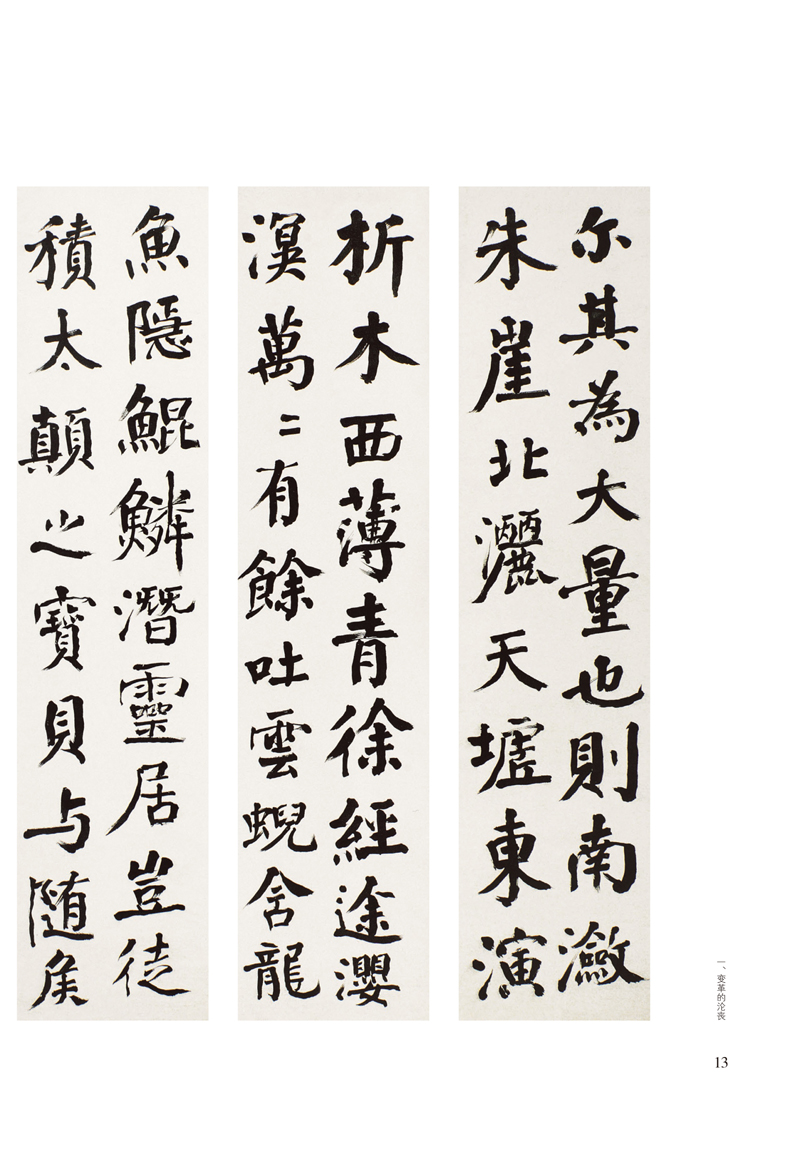 尔其為大量也則南瀲
朱崖北灑天墟東演
析木西薄青徐經途瀴
溟萬〻有餘吐雲蜺含龍
魚隱鯤鱗潛靈居豈徒
積太顛之寶貝与随矦
一、变革的沦丧
13